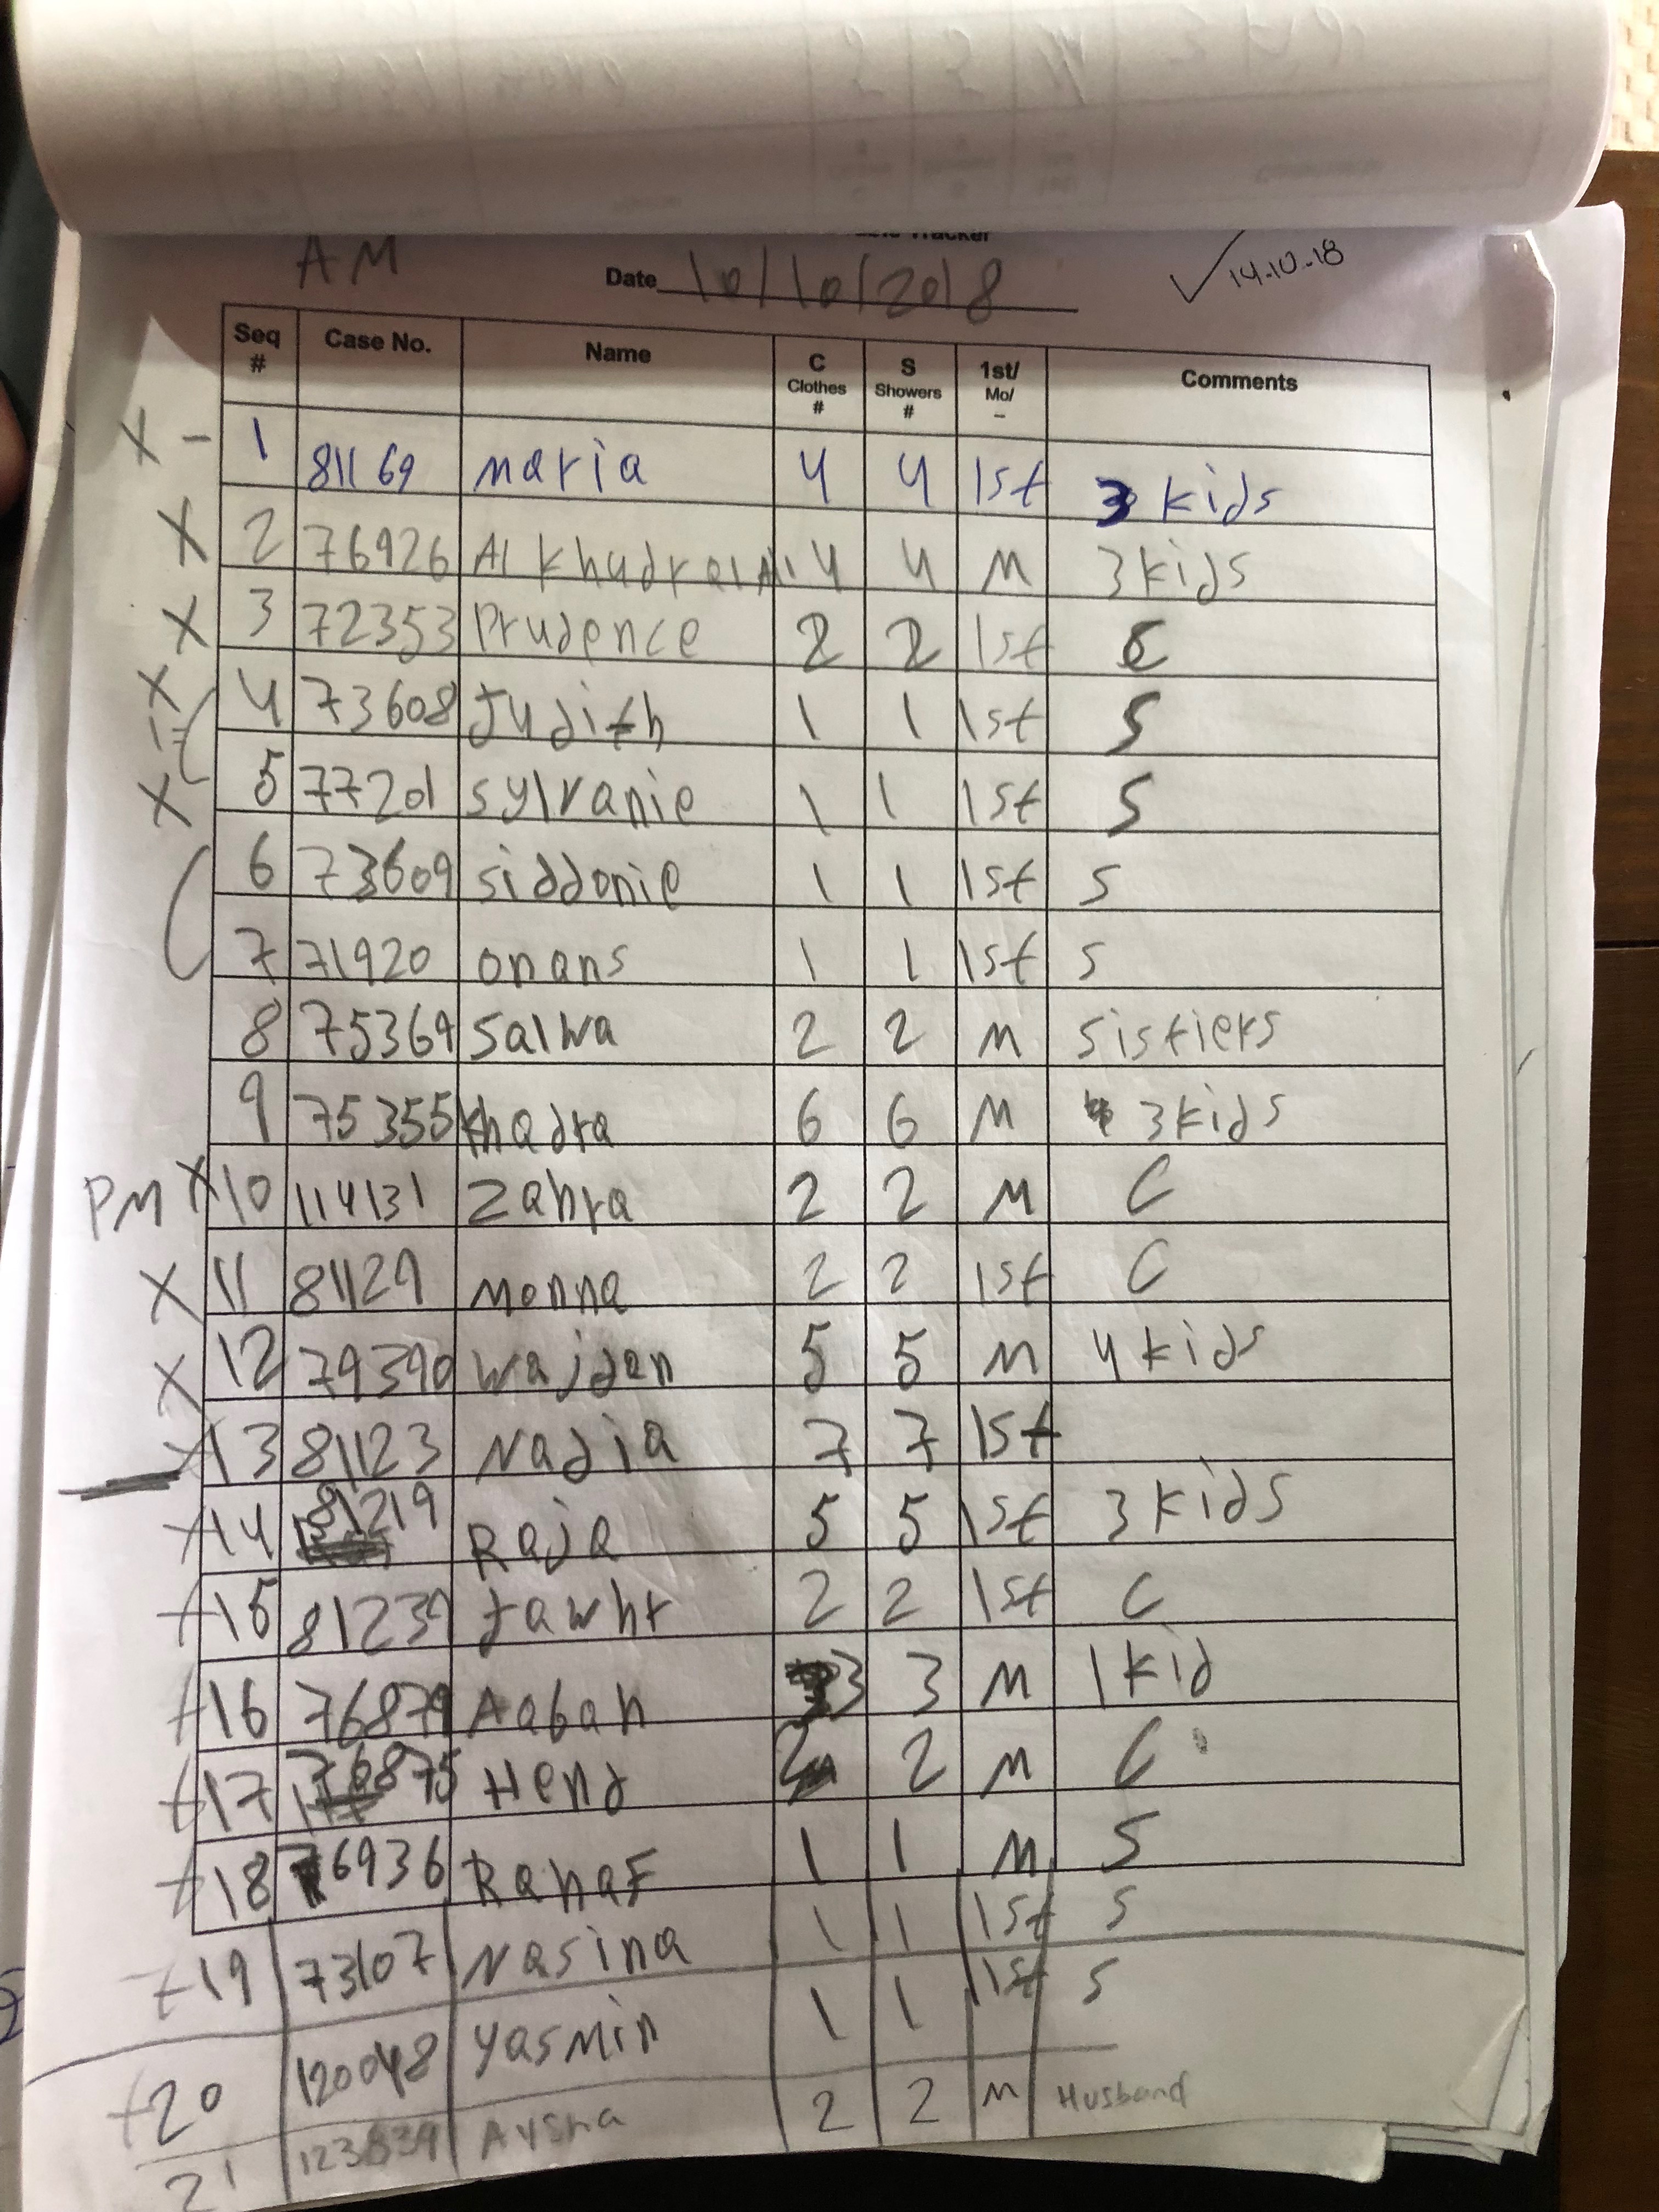 Tracker
AM
Date 10/10/2018
14-10-18
Seq # Case No. Name C Clothes # S Showers # 1st/ Mo/ – Comments
X - 1 81169 maria 4 4 1st 3 kids
X 2 76926 Al khudra 4 4 M 3 kids
X 3 72353 Prudence 2 2 1st C
X 4 73608 Judith 1 1 1st S
X 5 77201 sylvanie 1 1 1st S
6 73609 siddonie 1 1 1st S
7 71920 onans 1 1 1st S
8 75369 Salwa 2 2 M Sistiers
9 75355 khadra 6 6 M 3 kids
PM X 10 114131 Zahra 2 2 M C
X 11 81129 Monna 2 2 1st C
X 12 79390 wajden 5 5 M 4 kids
X 13 81123 Nadia 7 7 1st
X 14 81219 Raja 5 5 1st 3 kids
X 15 81239 Jawhr 2 2 1st C
X 16 76879 Aabah 3 3 M 1 kid
X 17 76875 Hend 2 2 M C
X 18 76936 Rahaf 1 1 M S
X 19 73107 Nasina 1 1 1st S
X 20 120048 Yasmin 1 1 1st S
21 123839 Aysha 2 2 M Husband